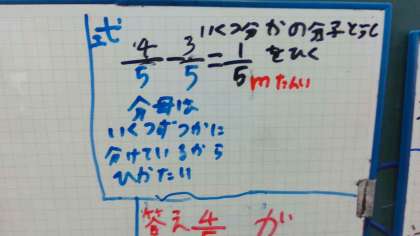 式
いくつ分かの分子どうし
をひく
4/5 - 3/5 = 1/5
mたんい
分母は
いくつずつかに
分けているから
ひかない
答え 4/5 が